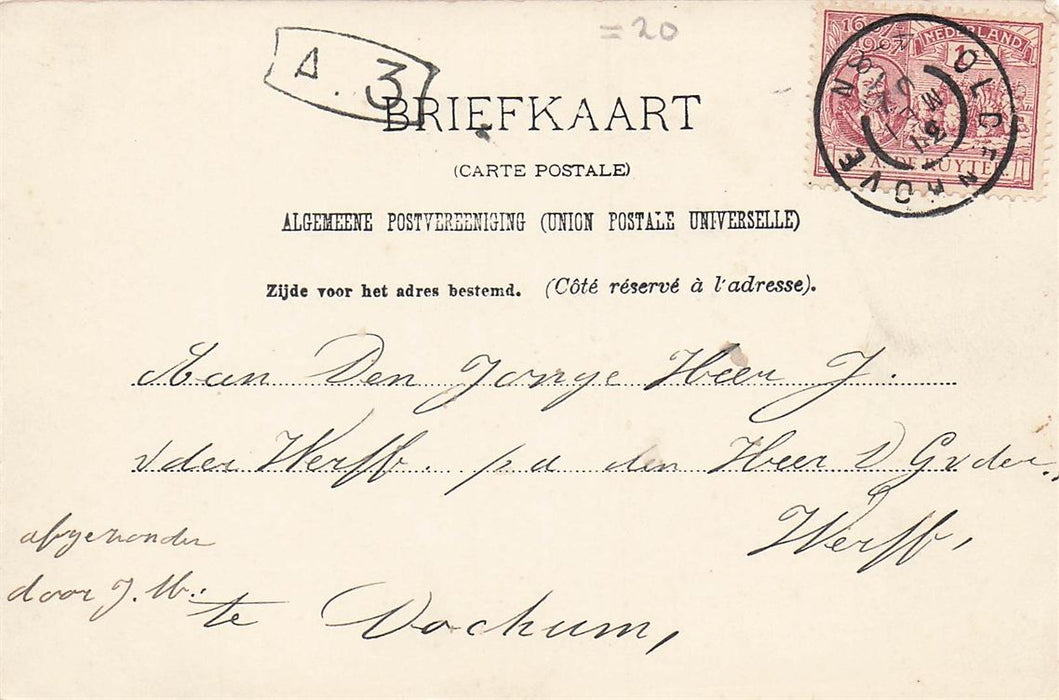 = 20
A. 3
1607 1907
NEDERLAND
1
DE RUYTER
BRIEFKAART
(CARTE POSTALE)
ALGEMEENE POSTVEREENIGING (UNION POSTALE UNIVERSELLE)
Zijde voor het adres bestemd. (Côté réservé à l'adresse).
Aan Den Jonge Heer J.
v der Werff. pa den Heer D G v der
Werff,
afgezonden
door J. W.
te Dochum,